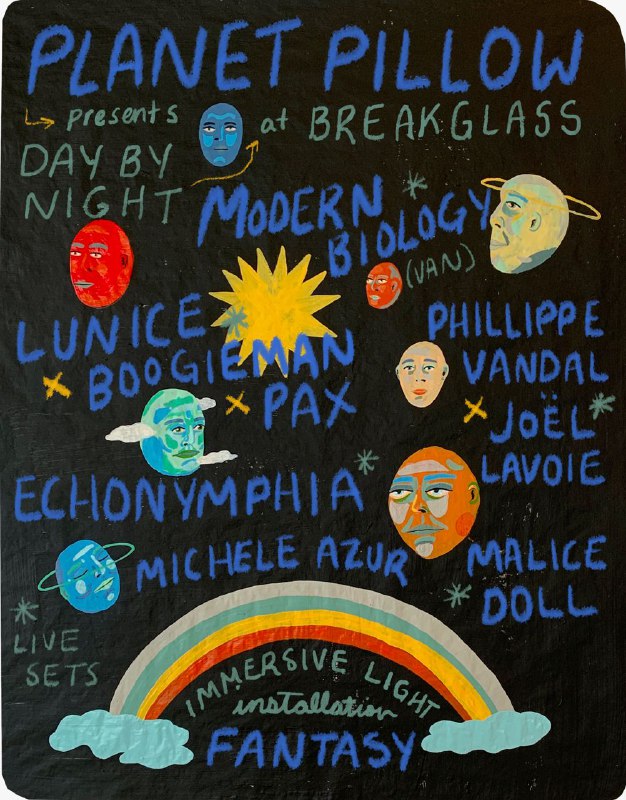 PLANET PILLOW
presents at BREAKGLASS
DAY BY
NIGHT
MODERN *
BIOLOGY
(VAN)
LUNICE *
BOOGIEMAN
PAX
PHILLIPPE
VANDAL
JOËL *
LAVOIE
ECHONYMPHIA *
MICHELE AZUR
MALICE
* DOLL
*
LIVE
SETS
IMMERSIVE LIGHT
installation
FANTASY